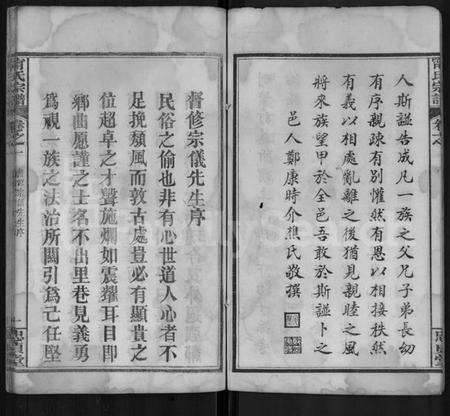 甯氏宗譜
卷之一
人斯譜告成凡一族之父兄子弟長幼
有序親踈有别懽然有恩以相接秩然
有義以相處亂離之後猶見親睦之風
將來族望甲於全邑吾敢於斯譜卜之
邑人鄭康時介樵氏敬撰
督修宗儀先生序
民俗之偷也非有心世道人心者不
足挽頽風而敦古處豈必有顯貴之
位超卓之才聲施爛如震耀耳目即
鄉曲愿謹之士名不出里巷見義勇
爲視一族之法治所關引爲己任堅
甯氏宗譜
卷之一
先生序
一